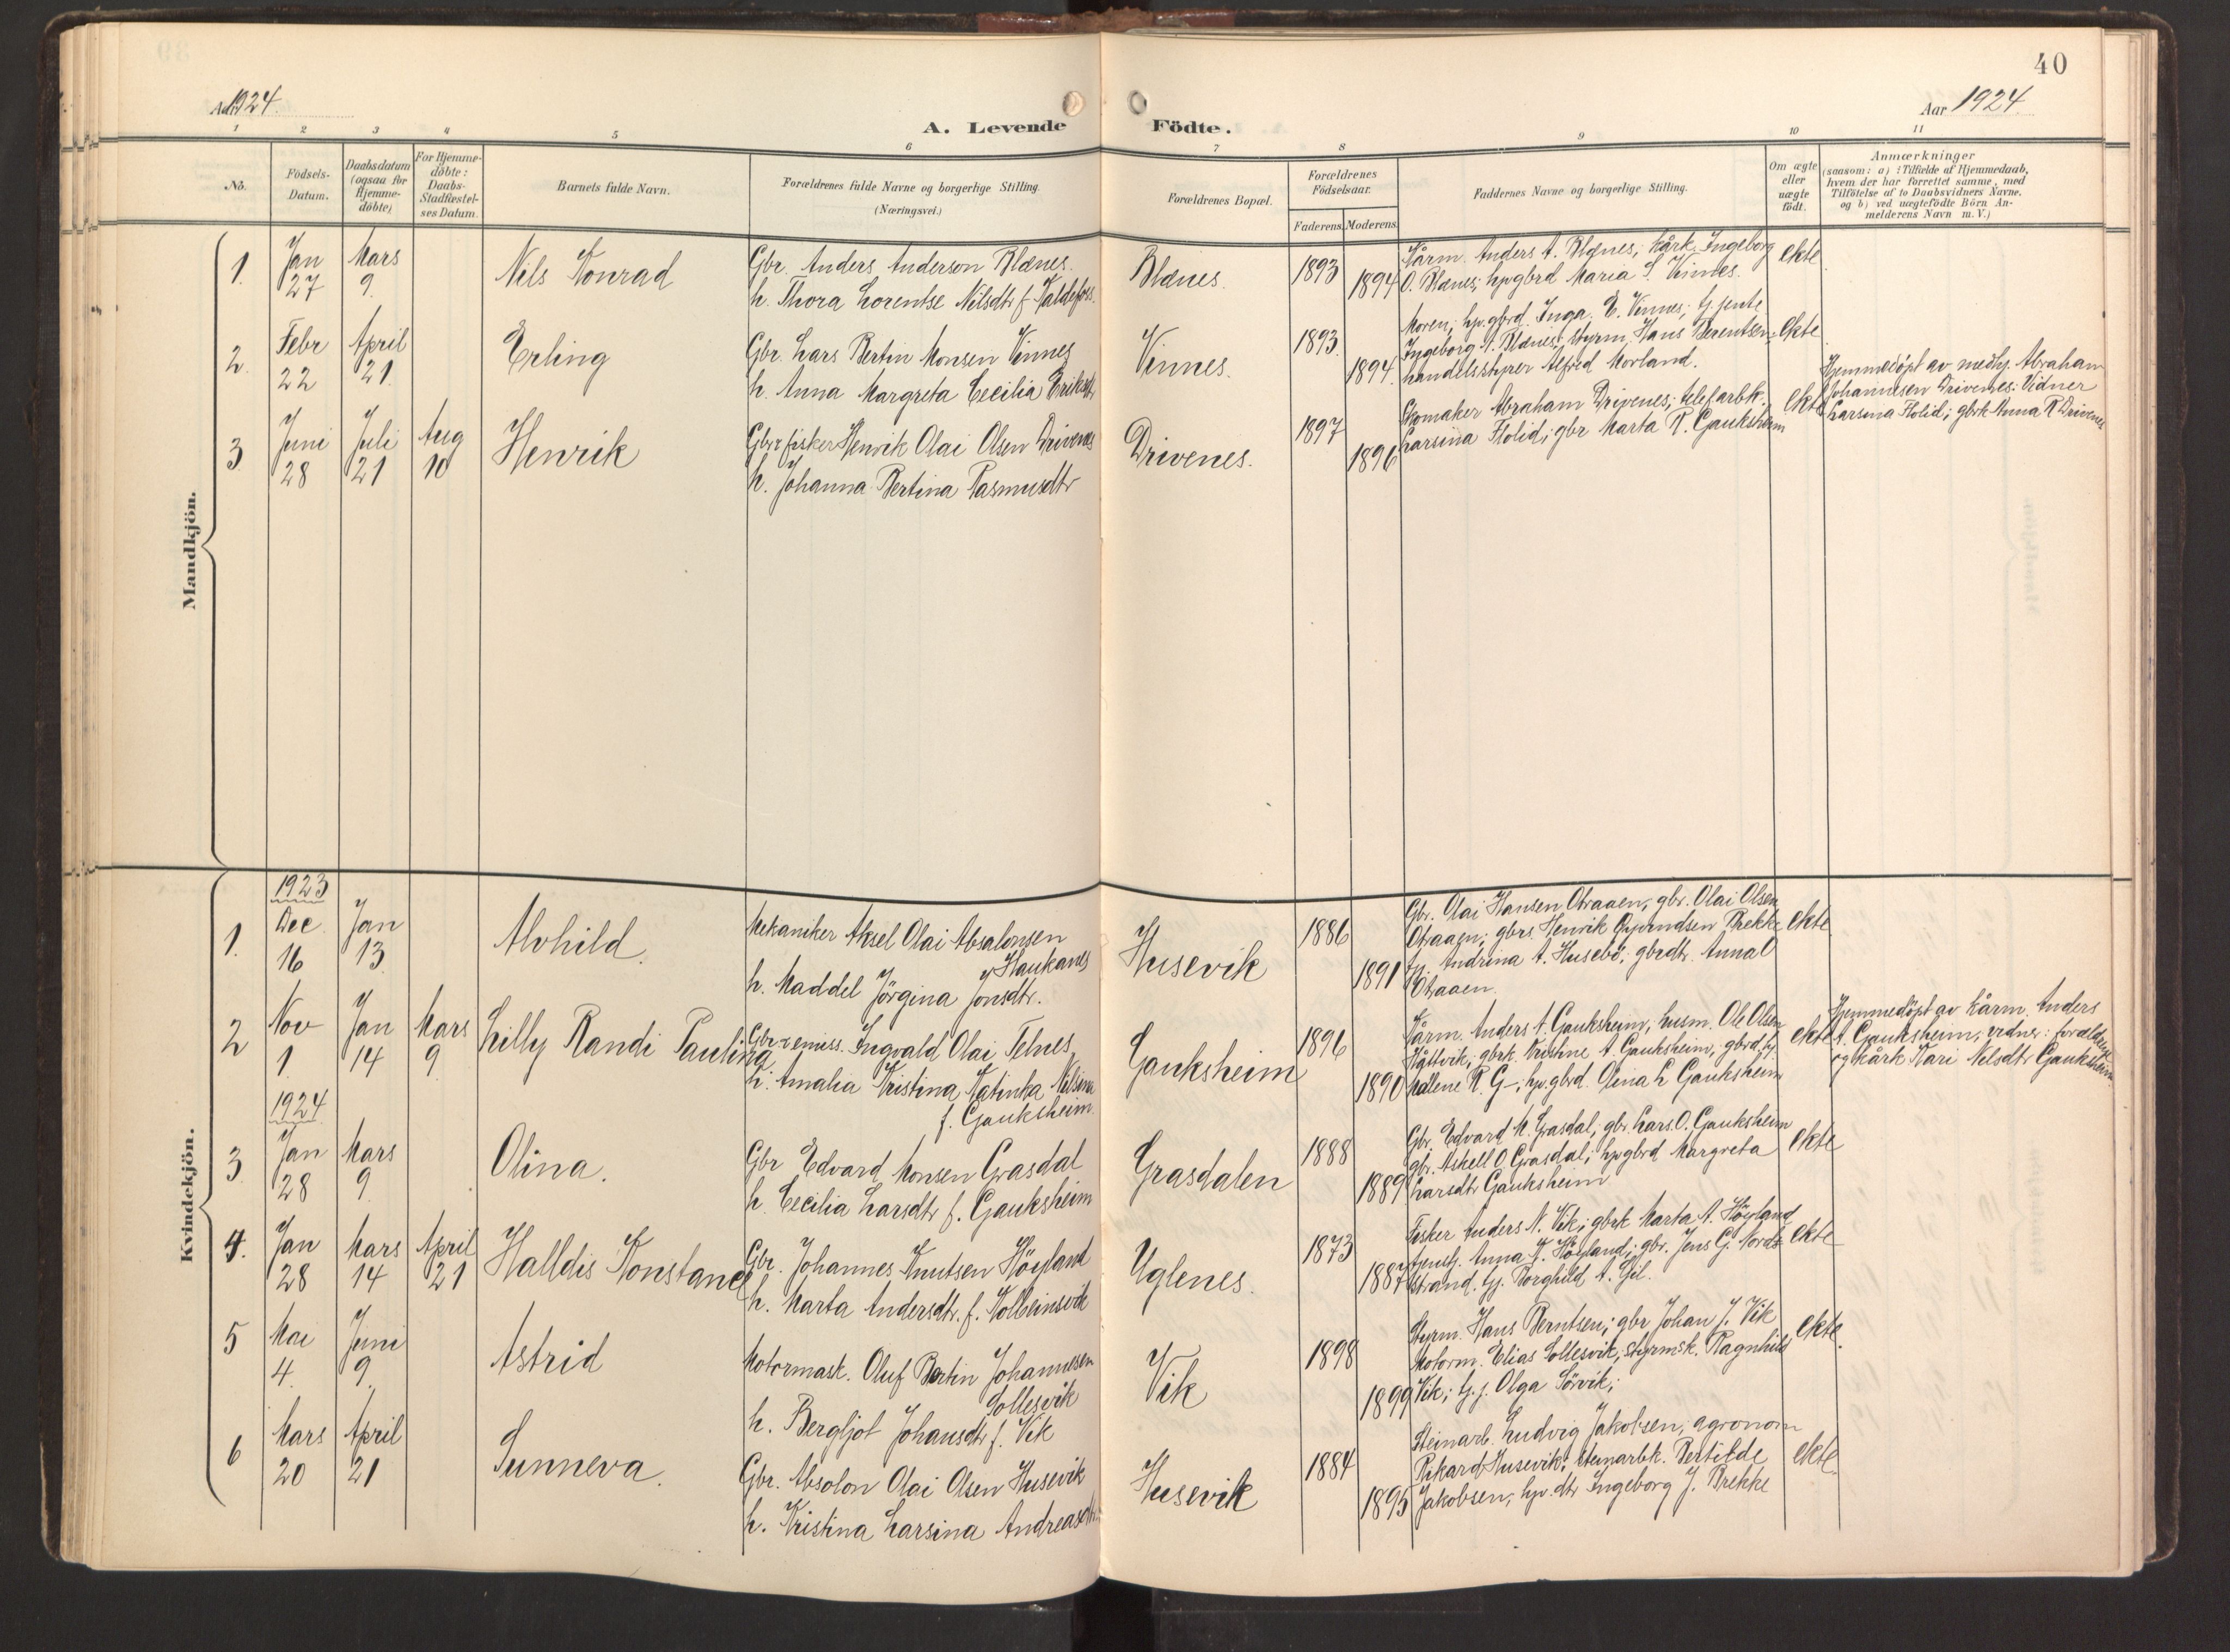 40
Aar 1924
A. Levende Födte.
Aar 1924
1 2 3 4 5 6 7 8 9 10 11
No.
Födsels-
Datum.
Daabsdatum
(ogsaa for
Hjemme-
döbte)
For Hjemme-
döbte:
Daabs-
Stadfæstel-
ses Datum.
Barnets fulde Navn.
Forældrenes fulde Navne og borgerlige Stilling.
(Næringsvei.)
Forældrenes Bopæl.
Forældrenes
Födselsaar.
Faderens. Moderens.
Faddernes Navne og borgerlige Stilling.
Om ægte
eller
uægte
födt.
Anmærkninger
(saasom: a) i Tilfælde af Hjemmedaab,
hvem der har forrettet samme, med
Tilföielse af to Daabsvidners Navne,
og b) ved uægtefödte Börn An-
melderens Navn m. V.)
Mandkjön.
1. Jan 27 Mars 9. Nils Konrad
Gbr. Anders Anderson Blænes.
h. Thora Lorentse Nilsdtr f.
Blænes. 1893 1894
Kårm. Anders A. Blænes; kårk. Ingeborg
O. Blænes; hp gbrd Maria S. Vinnes.
ekte
2. Febr 22 April 21. Erling
Gbr. Lars Bertin Monsen Vinnes
h. Anna Margreta Cecilia Eriksdtr
Vinnes. 1893. 1894.
Moren; hp. gbrd. Inga. E. Vinnes; tj. jente
Ingeborg A. Blænes; styrm. Hans Berentsen;
handelsstyrer Alfred Morland.
ekte
3 Juni 28 Juli 21 Aug 10 Henrik
Gbr & fisker Henrik Olai Olsen Drivenes
h. Johanna Bertina Rasmusdtr
Drivenes. 1897 1896
Skomaker Abraham Drivenes; telef.arbk.
Larsina Flolid; gbr Marta R. Gauksheim
ekte
Hjemmedöpt av medhj. Abraham
Johannesen Drivenes: Vidner
Larsina Flolid; gbrk Anna R Drivenes
Kvindekjön.
1923
1. Dec. 16 Jan 13 Alvhild.
Mekaniker Aksel Olai Absalonsen
Haukanes
h. Maddel Jörgina Jonsdtr.
Husevik 1886 1891
Gbr. Olai Hansen Otraaen, gbr. Olai Olsen
Otraaen; gbrs. Henrik Brekke
Andrina A. Husebö; gbrdtr. Anna O
Otraaen.
ekte
2 Nov 1 Jan 14 Mars 9 Lilly Randi Paulina
Gbr & emiss. Ingvald Olai Telnes,
h. Amalia Kristina Katinka Nilsina
f. Gauksheim.
Gauksheim 1896 1890
Kårm. Anders A. Gauksheim, husm. Ole Olsen
gbrk. Kristine A. Gauksheim, gbrd
Malene R. G-, hp. gbrd. Olina L Gauksheim
ekte
Hjemmedöpt av kårm. Anders
A. Gauksheim; vidner: forældrene
og kårk Kari Nilsdtr Gauksheim
1924
3 Jan 28 Mars 9 Olina.
Gbr Edvard Monsen Grasdal
h. Cecilia Larsdtr f. Gauksheim
Grasdalen 1888 1889
Gbr. Edvard M. Grasdal; gbr. Lars. O. Gauksheim
gbr. Askell O. Grasdal; hp gbrd Margreta
Larsdtr Gauksheim
ekte
4. Jan 28 Mars 14 April 21 Halldis Konstance
Gbr. Johannes Knutsen Höyland
h. Marta Andersdtr. f. Kolbeinsvik
Uglenes. 1873 1887
Fisker Anders N. Vik; gbrk Marta A. Höyland
Anna J. Höyland; gbr. Jens G. Nord-
strand. tj. Borghild A. Gil.
ekte
5 Mai 4. Juni 9. Astrid
Motormask. Oluf Bertin Johannesen
Sollesvik
h. Bergljot Johansdtr f. Vik
Vik 1898 1899
Styrm. Hans Berntsen; gbr Johan J. Vik
Motorm. Elias Sollesvik, styrmsk. Ragnhild
Vik; tj. j. Olga Sörvik;
ekte.
6 Mars 20 April 21 Sunneva.
Gbr. Absolon Olai Olsen Husevik
h. Kristina Larsina Andreasdtr
Husevik 1884 1895
Steinarb. Ludvig Jakobsen, agronom
Rikard Husevik; steinarbk. Bertilde
Jakobsen, hp. dtr Ingeborg J. Brekke
ekte.